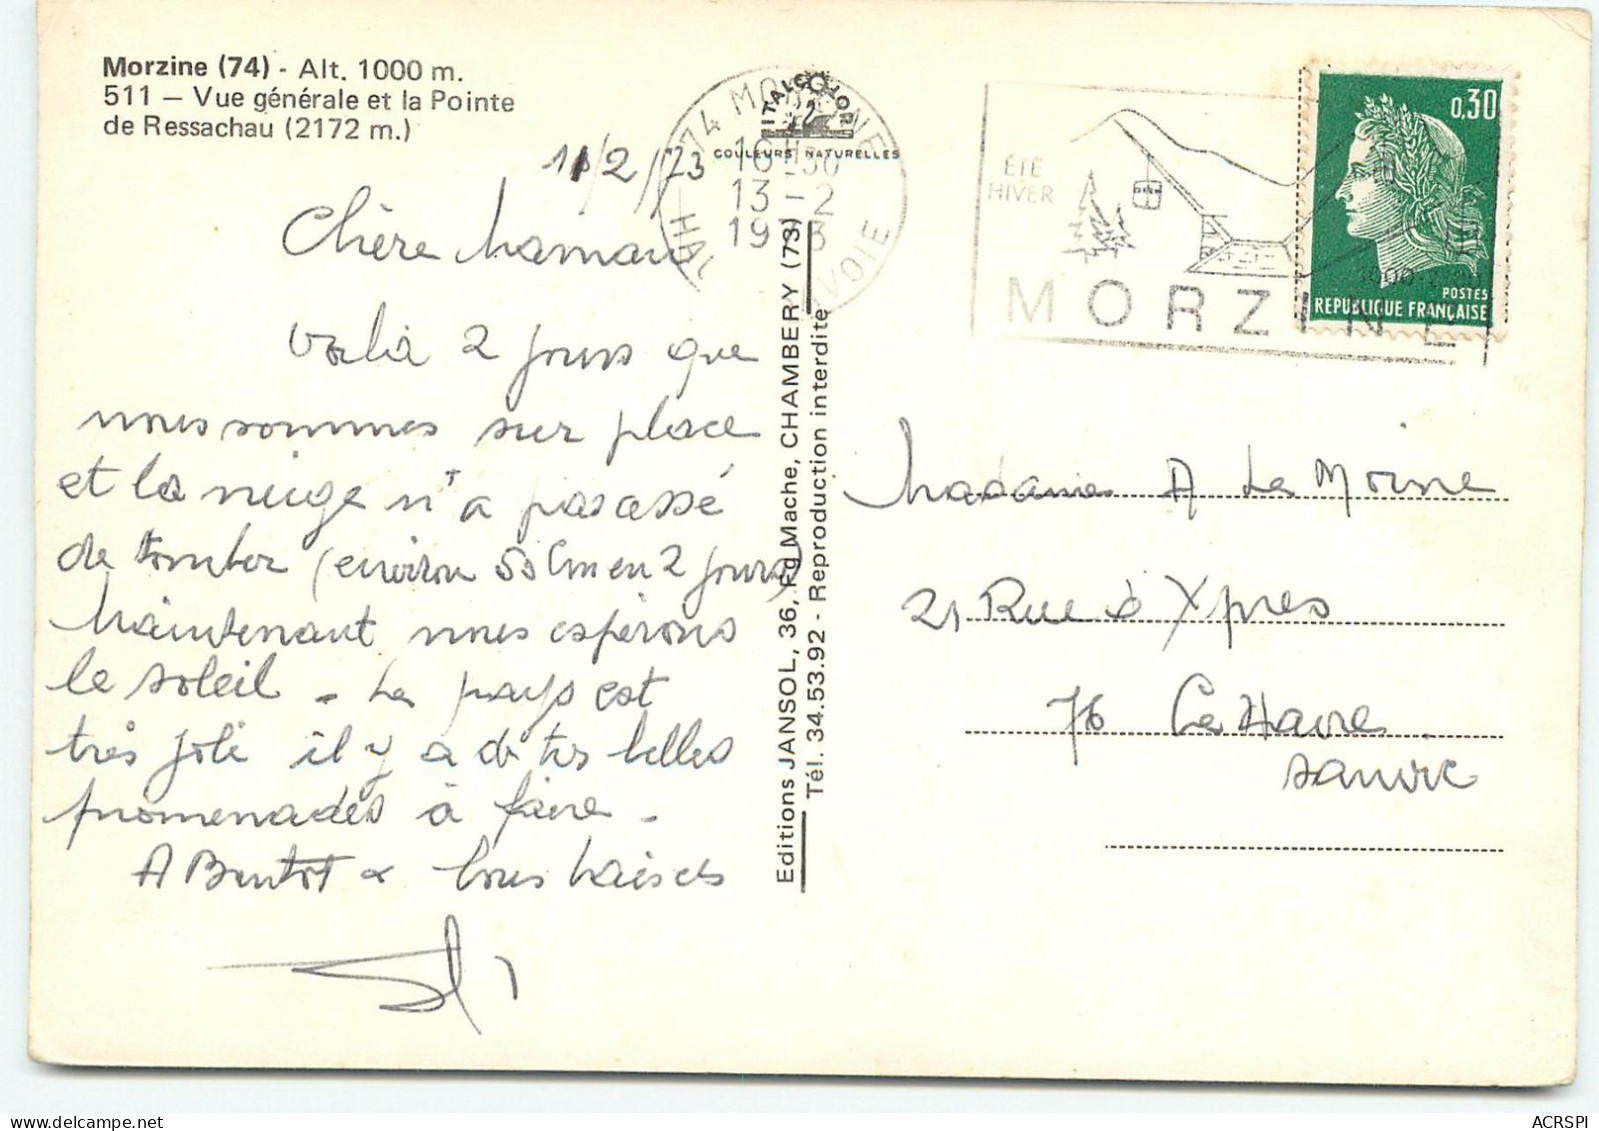 Morzine (74) - Alt. 1000 m.
511 — Vue générale et la Pointe
de Ressachau (2172 m.)
11/2/73
Chère Maman
Voilà 2 jours que
nous sommes sur place
et la neige n'a pas cessé
de tomber (environ 50 cm en 2 jours)
Maintenant nous espérons
le soleil - Le pays est
très joli il y a de très belles
promenades à faire -
A Bientot & bons baisers
ITALCOLOR
COULEURS NATURELLES
74 MORZINE
13 - 2
HAUTE SAVOIE
Editions JANSOL, 36, Fg Mache, CHAMBERY (73)
Tél. 34.53.92 - Reproduction interdite
ÉTÉ
HIVER
MORZINE
0,30
POSTES
REPUBLIQUE FRANÇAISE
Madame A Le Moine
21 Rue d Ypres
76 Le Havre
Sanvic
ACRSPI